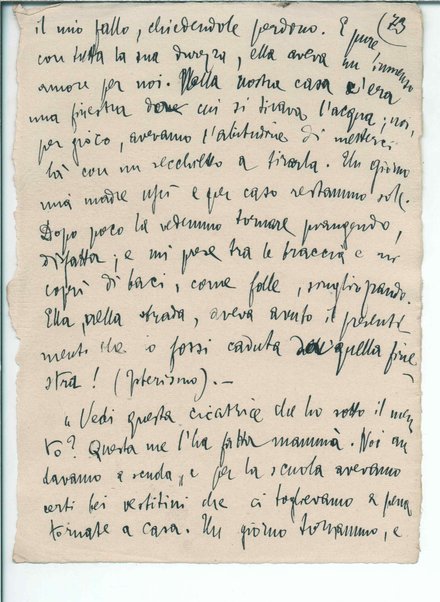 (73
il mio fallo, chiedendole perdono. E pure,
con tutta la sua durezza, ella aveva un immenso
amore per noi. Nella nostra casa c'era
una finestra da cui si tirava l'acqua; noi,
per gioco, avevamo l'abitudine di metterci
là con un secchietto a tirarla. Un giorno
mia madre uscì e per caso restammo sole.
Dopo poco la vedemmo tornare piangendo,
disfatta; e mi prese tra le braccia e mi
coprì di baci, come folle, singhiozzando.
Ella, nella strada, aveva avuto il presenti
mento che io fossi caduta da quella fine
stra! (Isterismo). —
"Vedi questa cicatrice che ho sotto il men
to? Questa me l'ha fatta mammà. Noi an
davamo a scuola, e per la scuola avevamo
certi bei vestitini che ci toglievamo appena
tornate a casa. Un giorno tornammo, e